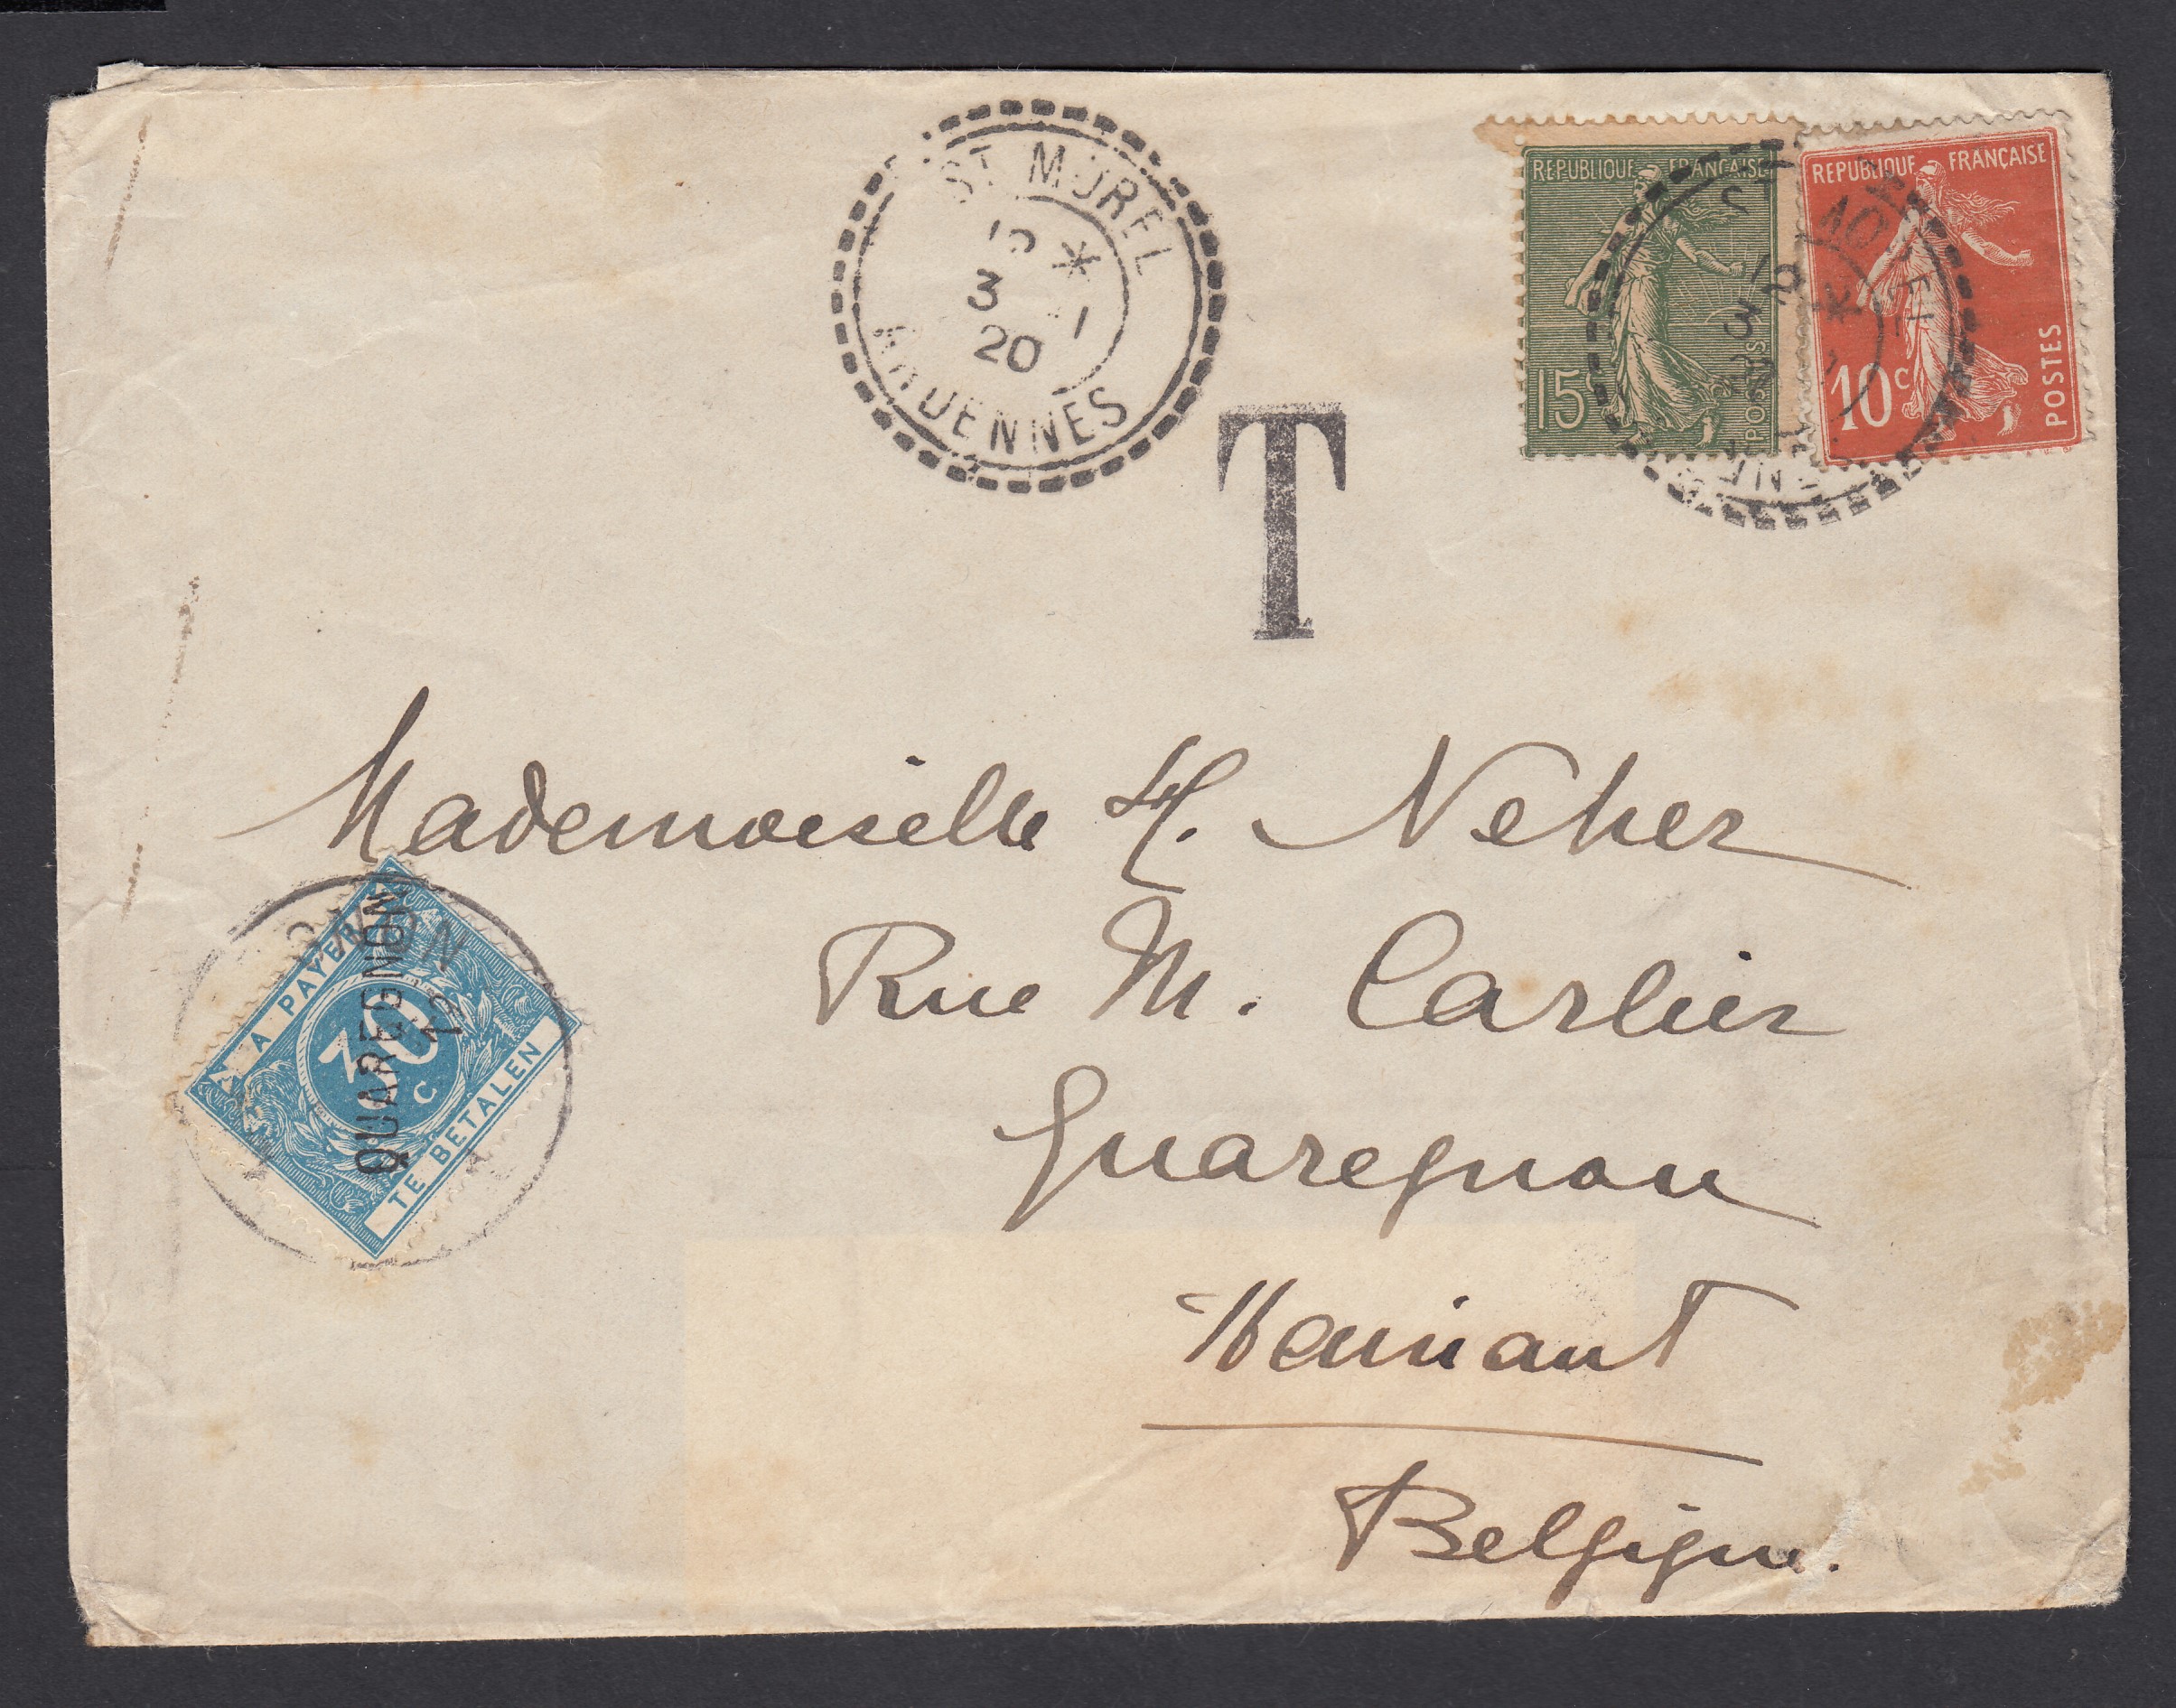 ST MOREL
12 *
3 -1
20
ARDENNES
REPUBLIQUE FRANÇAISE
15c
POSTES
REPUBLIQUE FRANÇAISE
10c
POSTES
T
Mademoiselle H. Neher
Rue M. Carlier
Quaregnon
Hainaut
Belgique.
A PAYER
30
C.
TE BETALEN
QUAREGNON